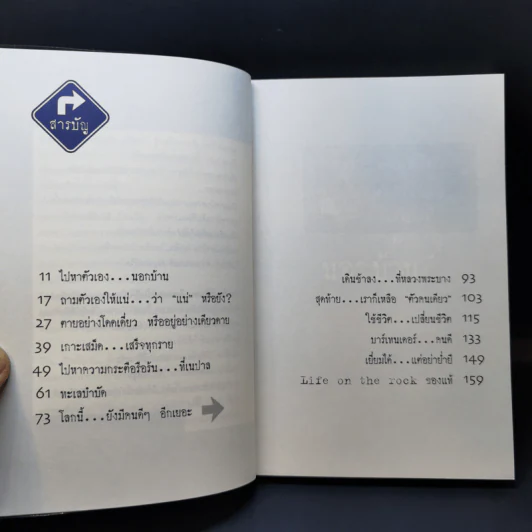 สารบัญ
11 ไปหาตัวเอง...นอกบ้าน
17 ถามตัวเองให้แน่...ว่า "แน่" หรือยัง?
27 ตายอย่างโดดเดี่ยว หรืออยู่อย่างเดียวดาย
39 เกาะเสม็ด...เสร็จทุกราย
49 ไปหาความกระตือรือร้น...ที่เนปาล
61 ทะเลบำบัด
73 โลกนี้...ยังมีคนดีๆ อีกเยอะ
เดินช้าลง...ที่หลวงพระบาง 93
สุดท้าย...เราก็เหลือ "ตัวคนเดียว" 103
ใช้ชีวิต...เปลี่ยนชีวิต 115
บาร์เทนเดอร์...คนดี 133
เยี่ยมได้...แต่อย่าย่ำยี 149
Life on the rock ของแท้ 159